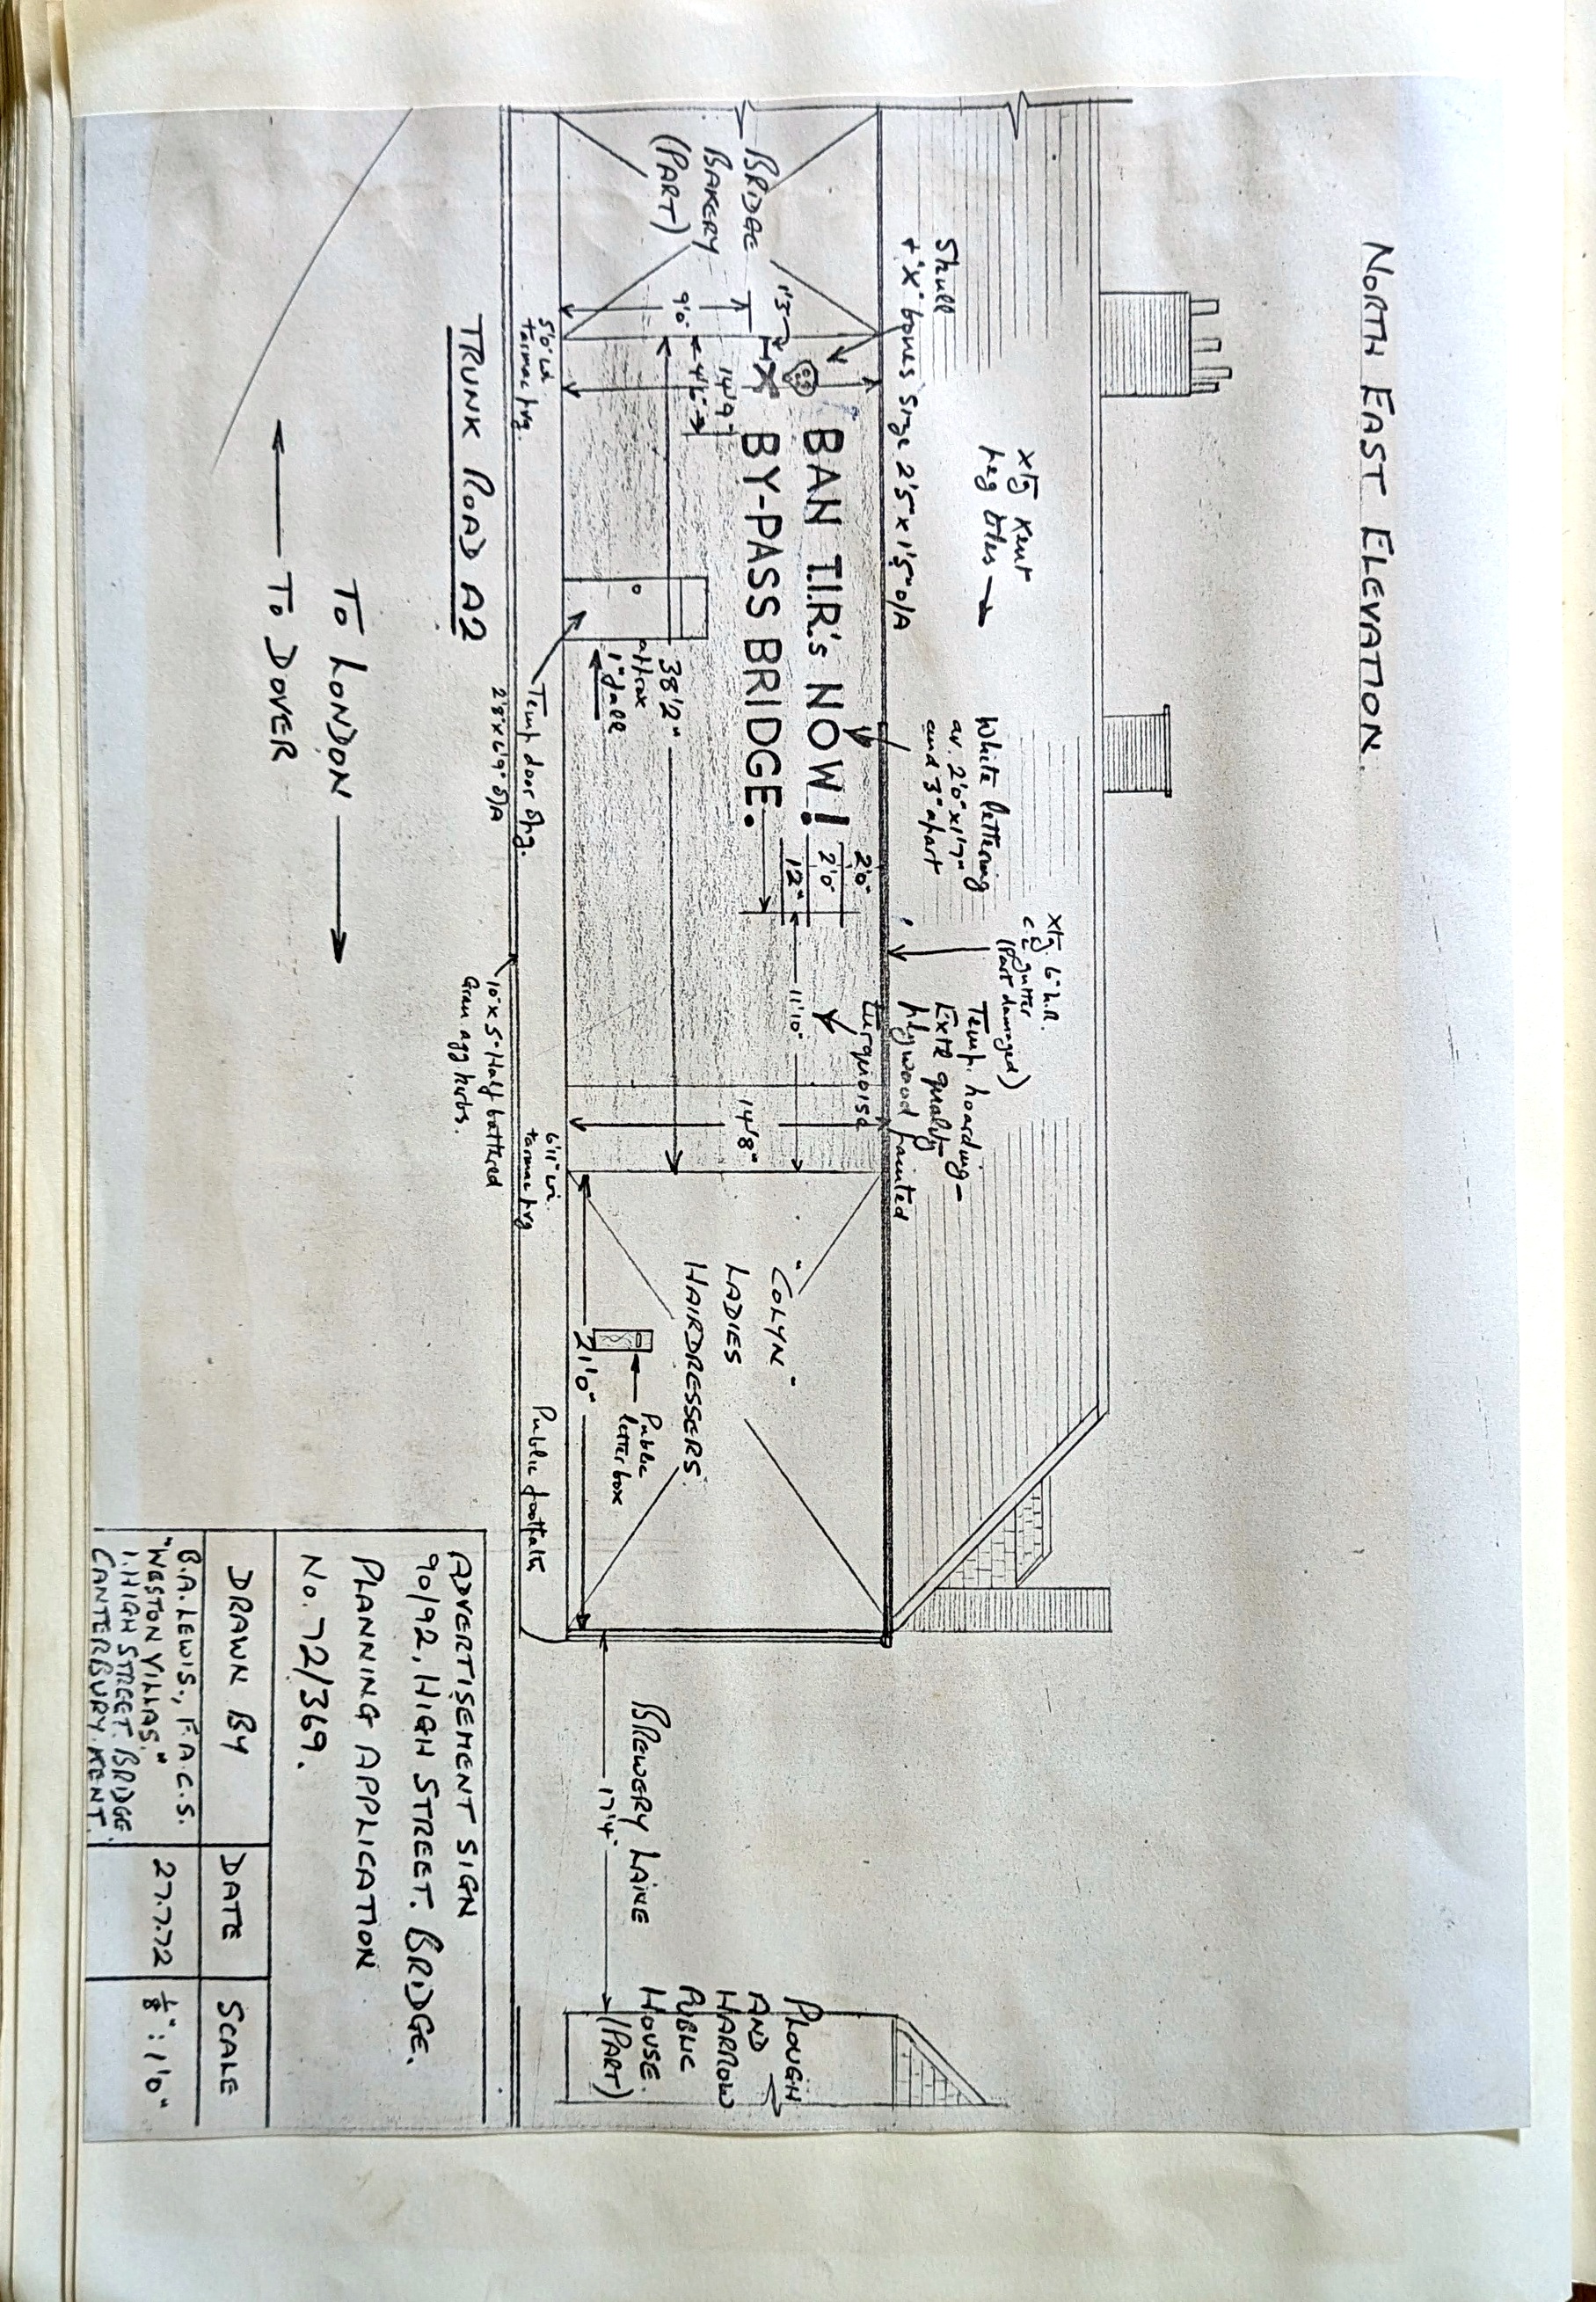 NORTH EAST ELEVATION.
xtg Kent
peg tiles
xtg. 6" h.R.
c I gutter
(Part damaged)
White lettering
av. 2'0" x 1'7"
and 3" apart
Temp. hoarding -
Extr quality
plywood painted
turquoise
Skull
+ "X" bones size 2'5" x 1'5" o/A
BAN T.I.R's NOW!
BY-PASS BRIDGE.
BRIDGE
BAKERY
(PART)
1'3"
9'0"
14'9"
4'6"
2'0"
2'0"
12"
11'10"
38'2"
14'8"
approx
1" fall
"COLYN"
LADIES
HAIRDRESSERS.
Public
letter box
21'0"
BREWERY LANE
17'4"
PLOUGH
AND
HARROW
PUBLIC
HOUSE.
(PART)
5'0" wi.
tarmac pvg.
Temp door opg.
2'8" x 6'9" o/A
6'11" wi.
tarmac pvg
Public footpath
10" x 5" Half battered
Gran agg kerbs.
TRUNK ROAD A2
TO LONDON
TO DOVER
ADVERTISEMENT SIGN
90/92, HIGH STREET. BRIDGE.
PLANNING APPLICATION
No. 72/369.
DRAWN BY
DATE
SCALE
B.A. LEWIS., F.A.C.S.
"WESTON VILLAS."
1. HIGH STREET. BRIDGE.
CANTERBURY. KENT.
27.7.72
1/8" : 1'0"